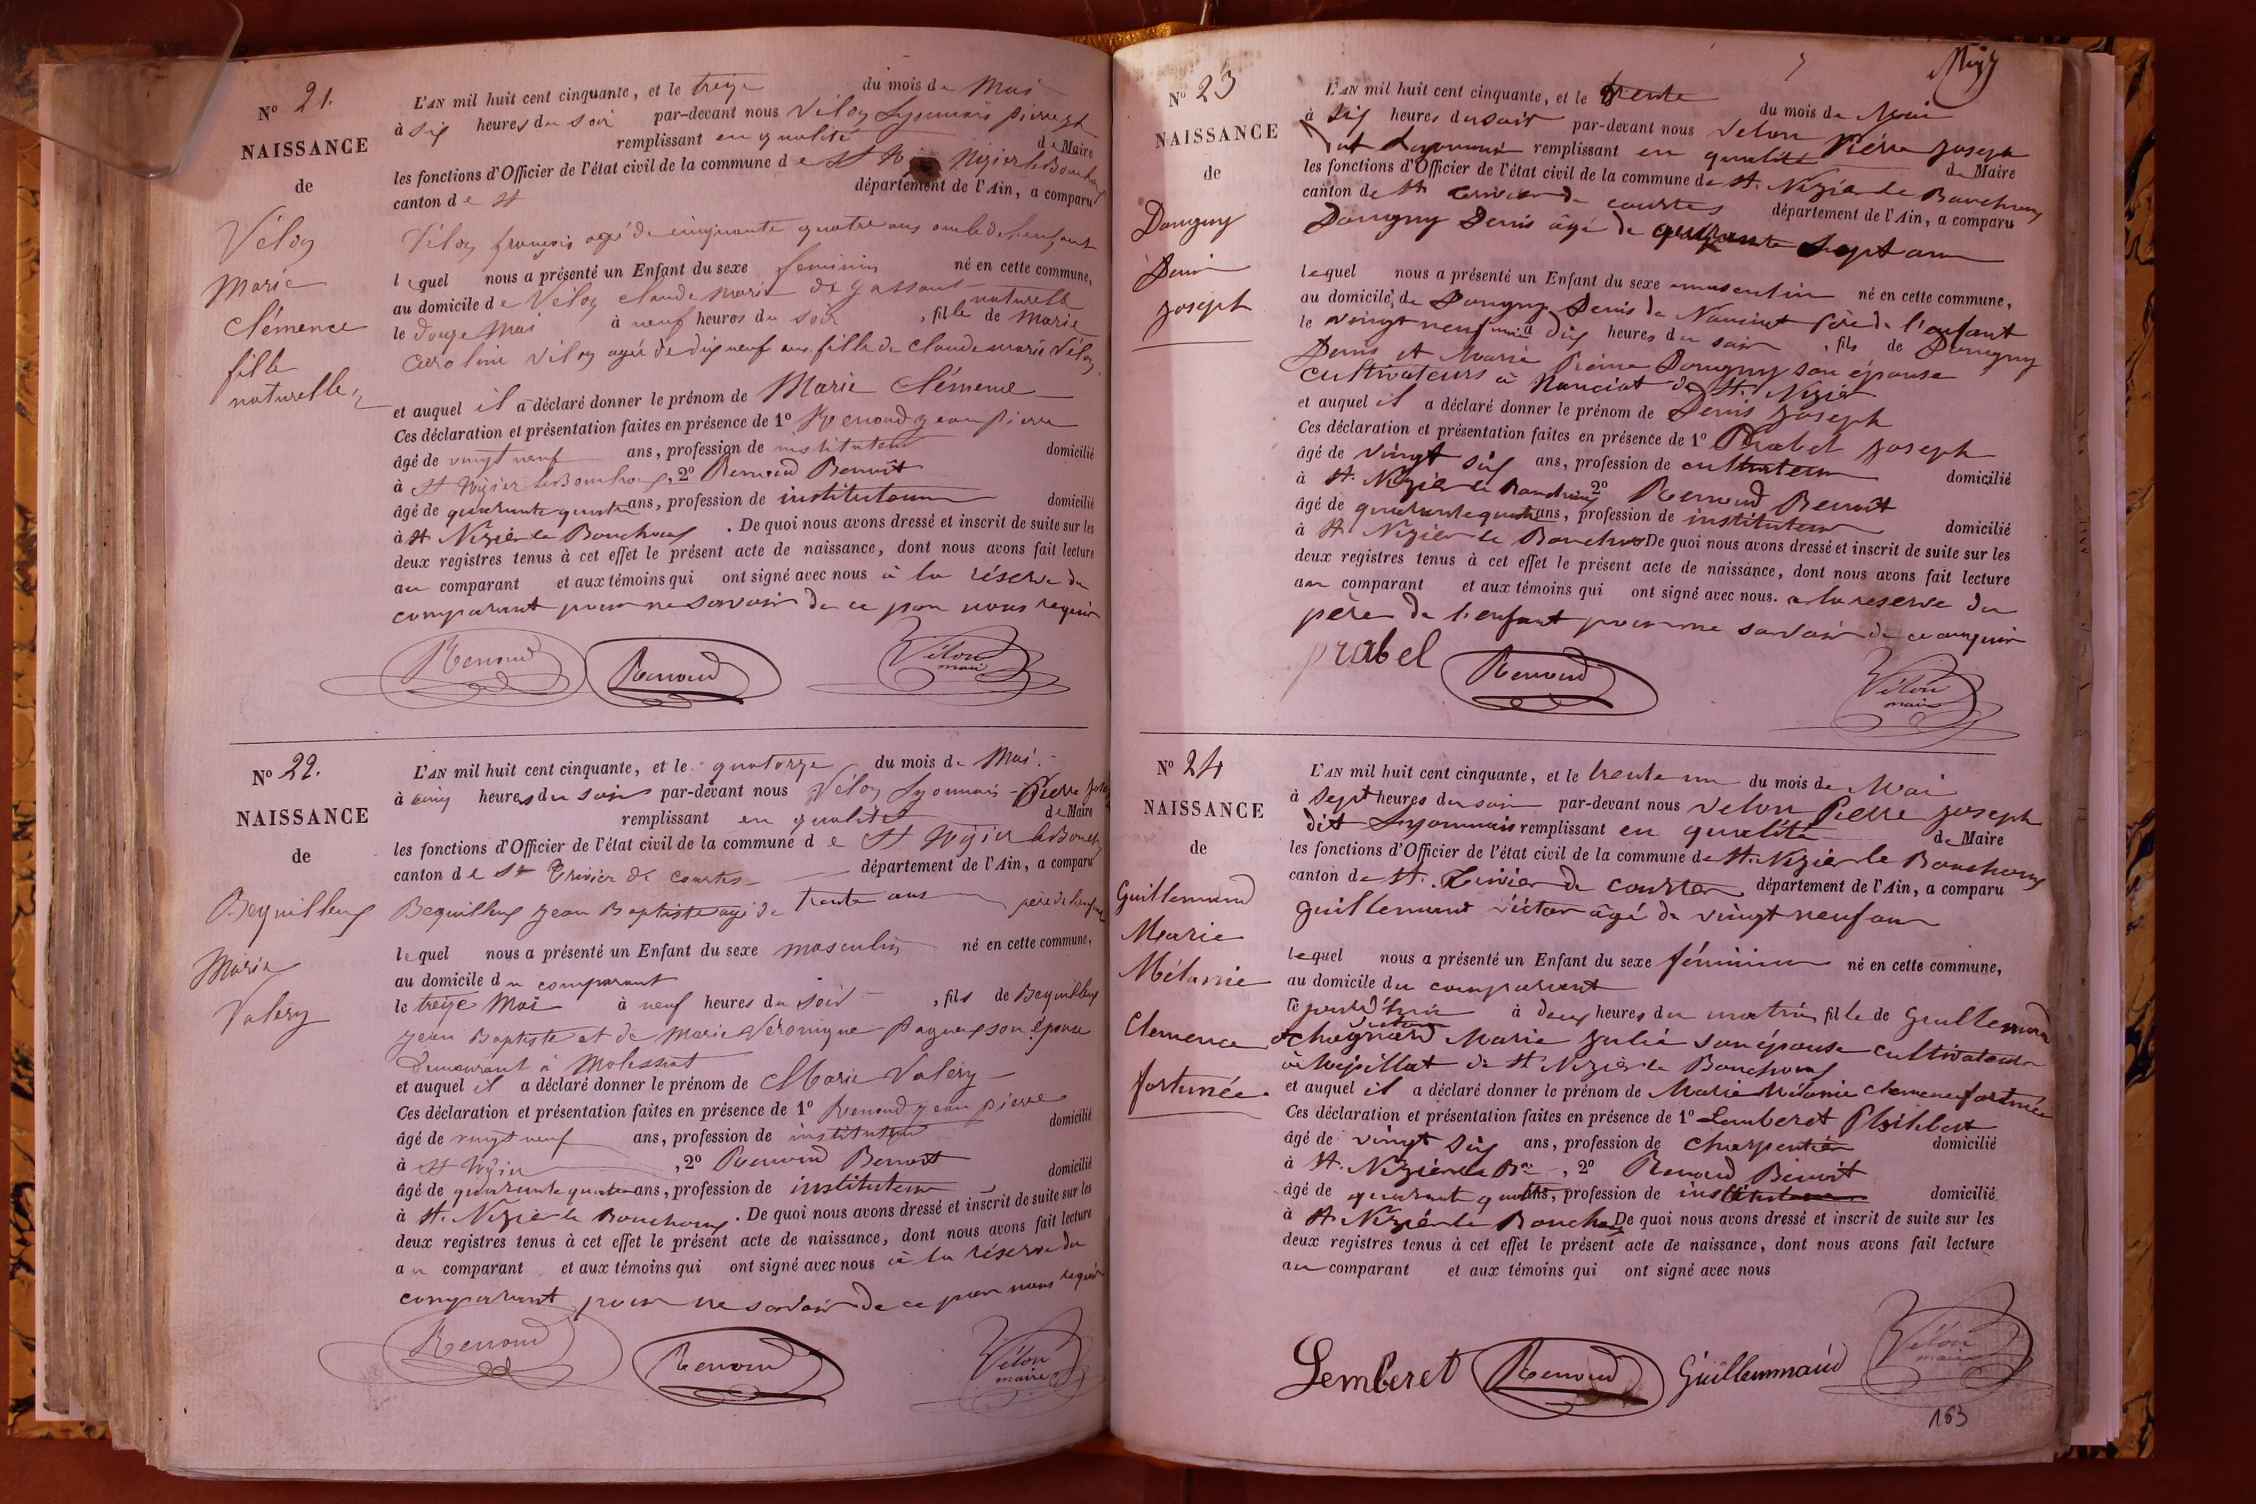 N° 21.
NAISSANCE
de
Véloz
Marie
Clémence
fille
naturelle
L'AN mil huit cent cinquante, et le treize du mois de Mai
à six heures du soir par-devant nous Véloz Lyonnais pierre jh
remplissant en qualité de Maire
les fonctions d'Officier de l'état civil de la commune de St Nizier le Bouchoux
canton de St département de l'Ain, a comparu
Véloz françois agé de cinquante quatre ans oncle de l'enfant
lequel nous a présenté un Enfant du sexe feminin né en cette commune,
au domicile de Véloz claude marie de naturelle
le douze Mai à neuf heures du soir, fille de Marie
caroline Véloz agée de dix neuf ans fille de claude marie Véloz
et auquel il a déclaré donner le prénom de Marie Clémence
Ces déclaration et présentation faites en présence de 1° Renoud jean pierre
âgé de vingt neuf ans, profession de instituteur domicilié
à St Nizier le Bouchoux, 2° Renoud Benoît
âgé de quarante quatre ans, profession de instituteur domicilié
à St Nizier le Bouchoux. De quoi nous avons dressé et inscrit de suite sur les
deux registres tenus à cet effet le présent acte de naissance, dont nous avons fait lecture
au comparant et aux témoins qui ont signé avec nous à la réserve du
comparant pour ne savoir de ce par nous requis
Renoud Renoud Vélon maire
N° 22.
NAISSANCE
de
Bequilleux
Marie
Valery
L'AN mil huit cent cinquante, et le quatorze du mois de Mai.
à cinq heures du soir par-devant nous Véloz Lyonnais Pierre
remplissant en qualité de Maire
les fonctions d'Officier de l'état civil de la commune de St Nizier le Bouch
canton de St Trivier de Courtes département de l'Ain, a comparu
Bequilleux Jean Baptiste agé de trente ans père de l'enfant
lequel nous a présenté un Enfant du sexe masculin né en cette commune,
au domicile du comparant
le treize Mai à neuf heures du soir, fils de Bequilleux
Jean Baptiste et de Marie Véronique son épouse
demeurant à Molissiat
et auquel il a déclaré donner le prénom de Marie Valery
Ces déclaration et présentation faites en présence de 1° Renoud jean pierre
âgé de vingt neuf ans, profession de instituteur domicilié
à St Nizier, 2° Renoud Benoît
âgé de quarante quatre ans, profession de instituteur domicilié
à St. Nizier le Bouchoux. De quoi nous avons dressé et inscrit de suite sur les
deux registres tenus à cet effet le présent acte de naissance, dont nous avons fait lecture
au comparant et aux témoins qui ont signé avec nous à la réserve du
comparant pour ne savoir de ce par nous requis
Renoud Renoud Vélon maire
N° 23
NAISSANCE
de
Donguy
Denis
Joseph
L'AN mil huit cent cinquante, et le trente du mois de Mai
à six heures du soir par-devant nous Velon Pierre Joseph
dit Lyonnais remplissant en qualité de Maire
les fonctions d'Officier de l'état civil de la commune de St. Nizier le Bouchoux
canton de St. Trivier de courtes département de l'Ain, a comparu
Donguy Denis âgé de quarante sept ans
lequel nous a présenté un Enfant du sexe masculin né en cette commune,
au domicile de Donguy Denis de Nanciat père de l'enfant
le vingt neuf mai à dix heures du soir, fils de Donguy
Denis et Marie Donguy son épouse
cultivateurs à Nanciat de St. Nizier
et auquel il a déclaré donner le prénom de Denis Joseph
Ces déclaration et présentation faites en présence de 1° Prabel Joseph
âgé de vingt six ans, profession de cultivateur domicilié
à St. Nizier le Bouchoux 2° Renoud Benoît
âgé de quarante quatre ans, profession de instituteur domicilié
à St Nizier le Bouchoux De quoi nous avons dressé et inscrit de suite sur les
deux registres tenus à cet effet le présent acte de naissance, dont nous avons fait lecture
au comparant et aux témoins qui ont signé avec nous. a la réserve du
père de l'enfant pour ne savoir de ce enquis
prabel Renoud Vélon maire
N° 24
NAISSANCE
de
Guillemaud
Marie
Mélanie
Clemence
fortunée.
L'AN mil huit cent cinquante, et le trente un du mois de Mai
à sept heures du soir par-devant nous Velon Pierre Joseph
dit Lyonnais remplissant en qualité de Maire
les fonctions d'Officier de l'état civil de la commune de St. Nizier le Bouchoux
canton de St. Trivier de courtes département de l'Ain, a comparu
Guillemaud Victor âgé de vingt neuf ans
lequel nous a présenté un Enfant du sexe féminin né en cette commune,
au domicile du comparant
le à deux heures du matin fille de Guillemaud
Victor
et chagnard Marie Julie son épouse cultivateurs
à de St Nizier le Bouchoux
et auquel il a déclaré donner le prénom de Marie Mélanie Clemence fortunée
Ces déclaration et présentation faites en présence de 1° Lemberet Philibert
âgé de vingt six ans, profession de charpentier domicilié
à St. Nizier le Bx, 2° Renoud Benoît
âgé de quarante quatre ans, profession de instituteur domicilié
à St Nizier le Bouchoux De quoi nous avons dressé et inscrit de suite sur les
deux registres tenus à cet effet le présent acte de naissance, dont nous avons fait lecture
au comparant et aux témoins qui ont signé avec nous
Lemberet Renoud Guillemaud Vélon maire
163